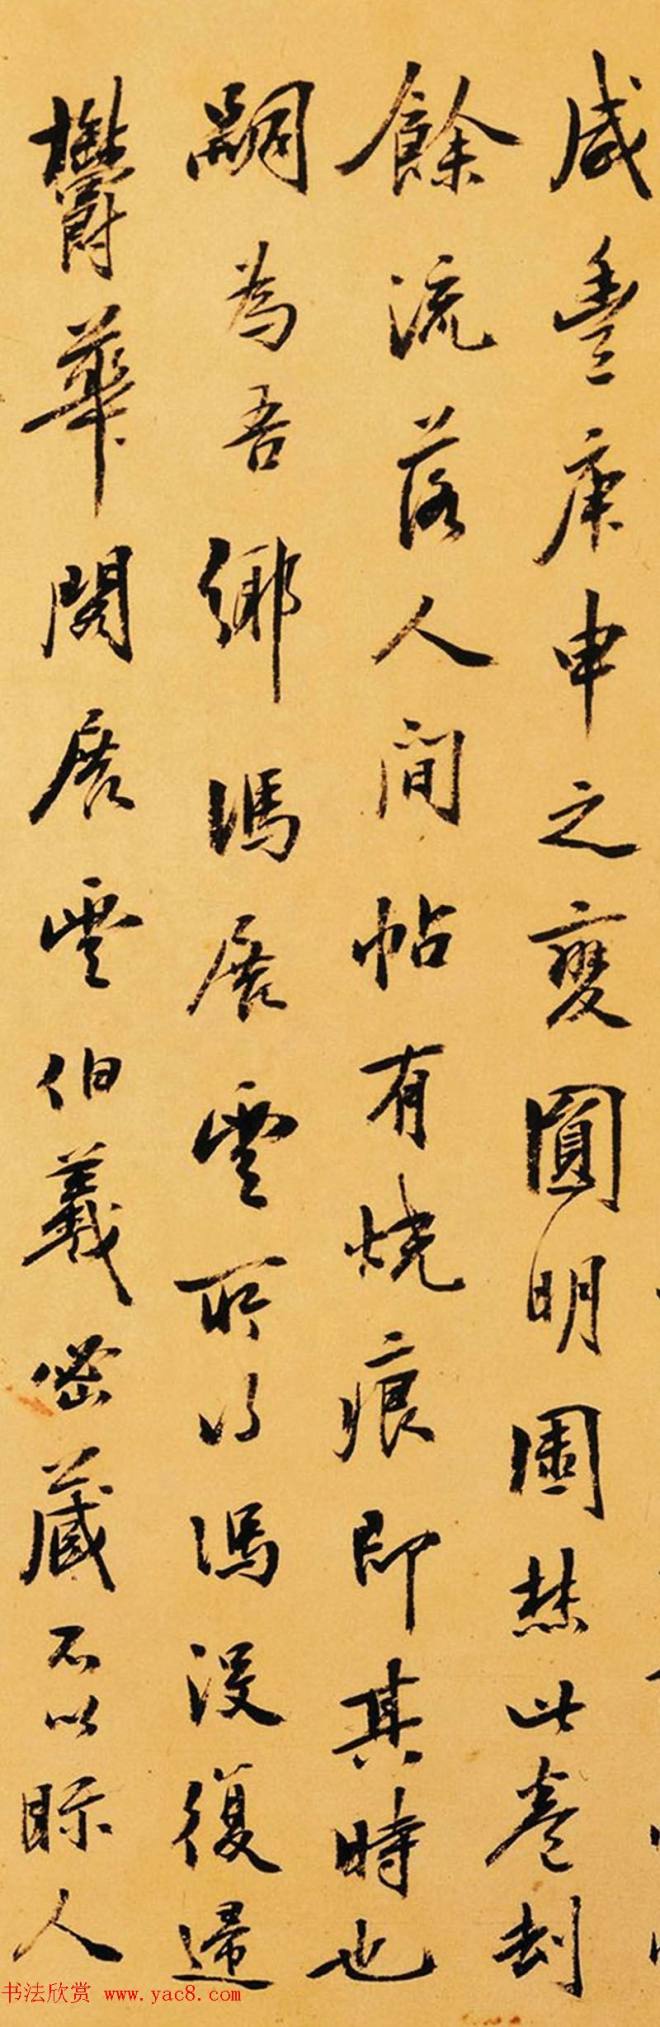 咸豐庚申之變圓明園焚此卷刼
餘流落人間帖有燒痕即其時也
嗣為吾鄉馮展雲所得馮没復歸
欝華閣展雲伯羲密藏不以眎人
书法欣赏 www.yac8.com